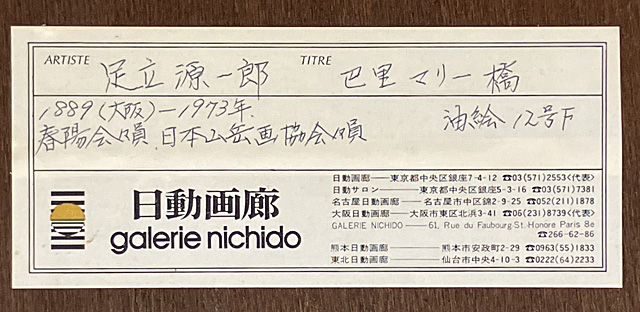 ARTISTE 足立源一郎 TITRE 巴里マリー橋
1889(大阪)ー1973年. 油絵 12号F
春陽会員.日本山岳画協会員
日動画廊
galerie nichido
日動画廊──東京都中央区銀座7-4-12 ☎03(571)2553<代表>
日動サロン──東京都中央区銀座5-3-16 ☎03(571)7381
名古屋日動画廊──名古屋市中区錦2-9-25 ☎052(211)1878
大阪日動画廊──大阪市東区北浜3-41 ☎06(231)8739<代表>
GALERIE NICHIDO──61, Rue du Faubourg-St-Honore Paris 8e
☎266-62-86
熊本日動画廊──熊本市安政町2-29 ☎0963(55)1833
東北日動画廊──仙台市中央4-10-3 ☎0222(64)2233